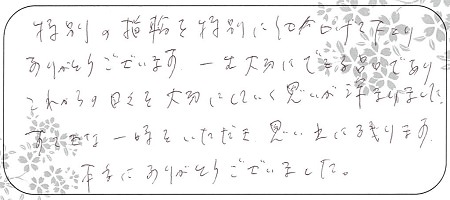 特別の指輪を特別に仕上げて下さり
ありがとうございます。一生大切にできる品であり
これからの日々を大切にしていく思いが深まりました。
すてきな一時をいただき思い出に残ります。
本当にありがとうございました。